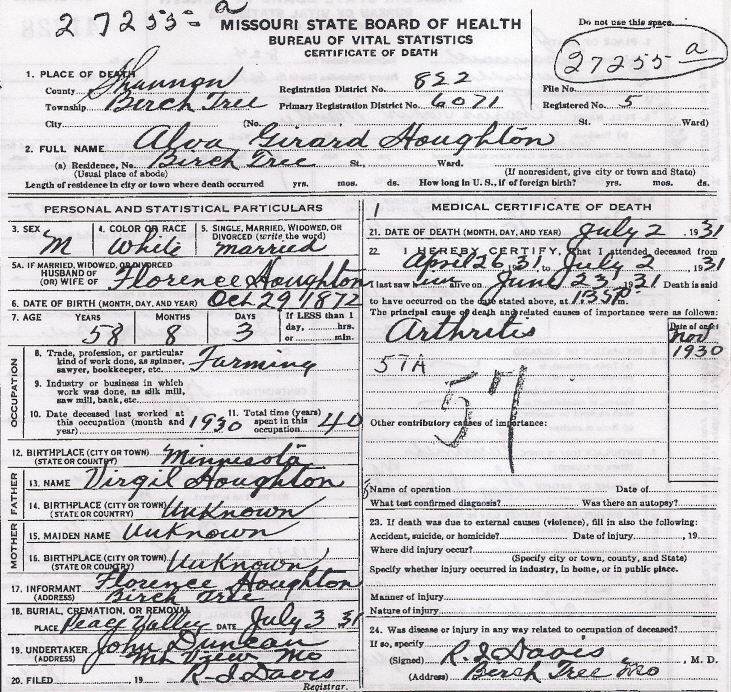 27255-a
MISSOURI STATE BOARD OF HEALTH
BUREAU OF VITAL STATISTICS
CERTIFICATE OF DEATH
Do not use this space.
27255 a
1. PLACE OF DEATH
County Shannon Registration District No. 822 File No.
Township Birch Tree Primary Registration District No. 6071 Registered No. 5
City (No. St. Ward)
2. FULL NAME Alva Girard Houghton
(a) Residence, No. Birch Tree St., Ward.
(Usual place of abode) (If nonresident, give city or town and State)
Length of residence in city or town where death occurred yrs. mos. ds. How long in U. S., if of foreign birth? yrs. mos. ds.
PERSONAL AND STATISTICAL PARTICULARS
3. SEX M 4. COLOR OR RACE White 5. SINGLE, MARRIED, WIDOWED, OR DIVORCED (write the word) married
5A. IF MARRIED, WIDOWED, OR DIVORCED
HUSBAND OF
(OR) WIFE OF Florence Houghton
6. DATE OF BIRTH (MONTH, DAY, AND YEAR) Oct 29 1872
7. AGE YEARS MONTHS DAYS If LESS than 1
58 8 3 day, hrs.
or min.
OCCUPATION
8. Trade, profession, or particular
kind of work done, as spinner,
sawyer, bookkeeper, etc. Farming
9. Industry or business in which
work was done, as silk mill,
saw mill, bank, etc.
10. Date deceased last worked at
this occupation (month and
year) 1930 11. Total time (years)
spent in this
occupation 40
12. BIRTHPLACE (CITY OR TOWN)
(STATE OR COUNTRY) Minnesota
FATHER
13. NAME Virgil Houghton
14. BIRTHPLACE (CITY OR TOWN)
(STATE OR COUNTRY) Unknown
MOTHER
15. MAIDEN NAME Unknown
16. BIRTHPLACE (CITY OR TOWN)
(STATE OR COUNTRY) Unknown
17. INFORMANT Florence Houghton
(ADDRESS) Birch Tree
18. BURIAL, CREMATION, OR REMOVAL
PLACE Peace Valley DATE July 3 31
19. UNDERTAKER John Duncan
(ADDRESS) Mt View Mo
20. FILED 19 R-I Davis
Registrar.
1 MEDICAL CERTIFICATE OF DEATH
21. DATE OF DEATH (MONTH, DAY, AND YEAR) July 2 1931
22. I HEREBY CERTIFY, That I attended deceased from
April 26 31, to July 2, 1931
I last saw him alive on June 23, 1931 Death is said
to have occurred on the date stated above, at m.
The principal cause of death and related causes of importance were as follows:
Date of onset
Arthritis Nov
1930
57A
57
Other contributory causes of importance:
Name of operation Date of
What test confirmed diagnosis? Was there an autopsy?
23. If death was due to external causes (violence), fill in also the following:
Accident, suicide, or homicide? Date of injury, 19
Where did injury occur?
(Specify city or town, county, and State)
Specify whether injury occurred in industry, in home, or in public place.
Manner of injury
Nature of injury
24. Was disease or injury in any way related to occupation of deceased?
If so, specify
(Signed) R-I Davis, M. D.
(Address) Birch Tree Mo